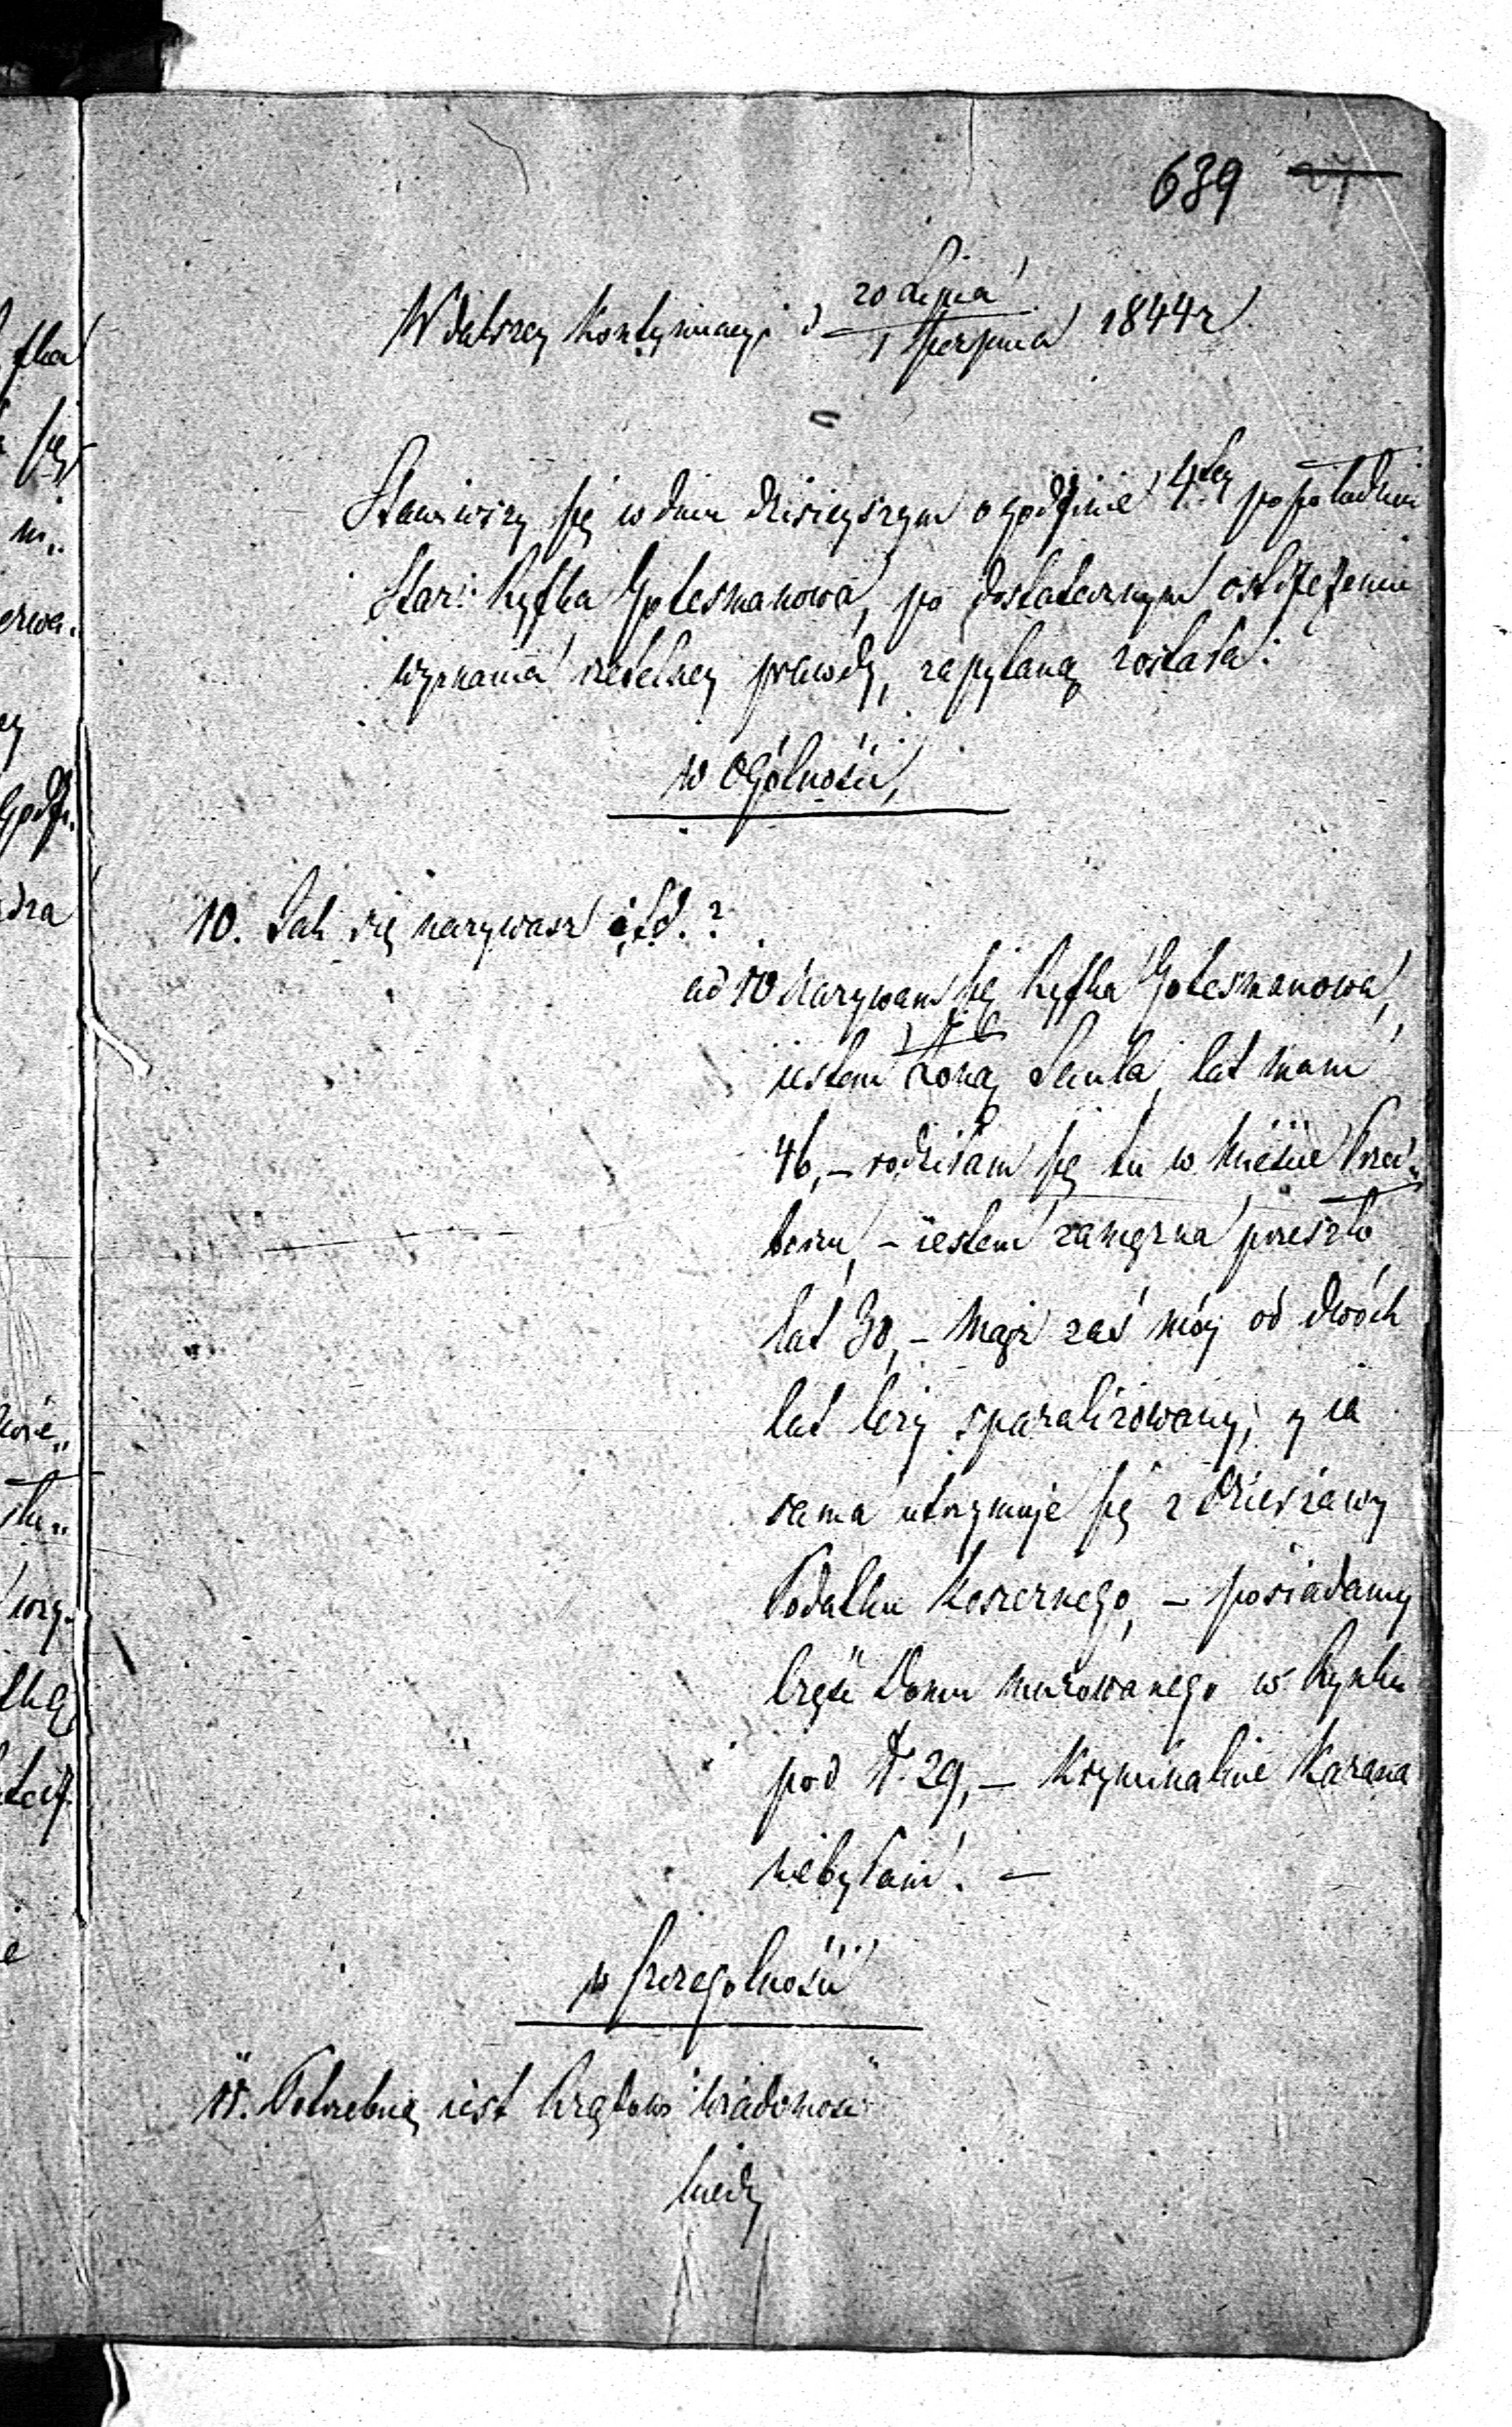 639
W dalszey kontynuacyi d 20 Lipca / 1 Sierpnia 1844 r
Stawiwszy się w dniu dzisieyszym o godzinie 4tey po południu
Star: Ryfka Gotesmanowa, po dostatecznym ostrzeżeniu
wyznania rzetelney prawdy, zapytaną została:
w Ogólności,
10. Jak się nazywasz i t.d.?
ad 10 Nazywam się Ryfka Gotesmanowa,
iestem Żoną Saula, lat mam
46, – rodziłam się tu w Mieście Przed„
borzu, – iestem zamężna przeszło
lat 30, – Mąż zaś móy od dwóch
lat leży sparaliżowany, y ia
sama utrzymuje się z dzierżawy
Podatku Koszernego, – posiadamy
Część Domu murowanego w Rynku
pod N. 29, – Kryminalnie Karana
niebyłam. –
w Szczególności
11. Potrzebną iest Urzędowi wiadomość
kiedy